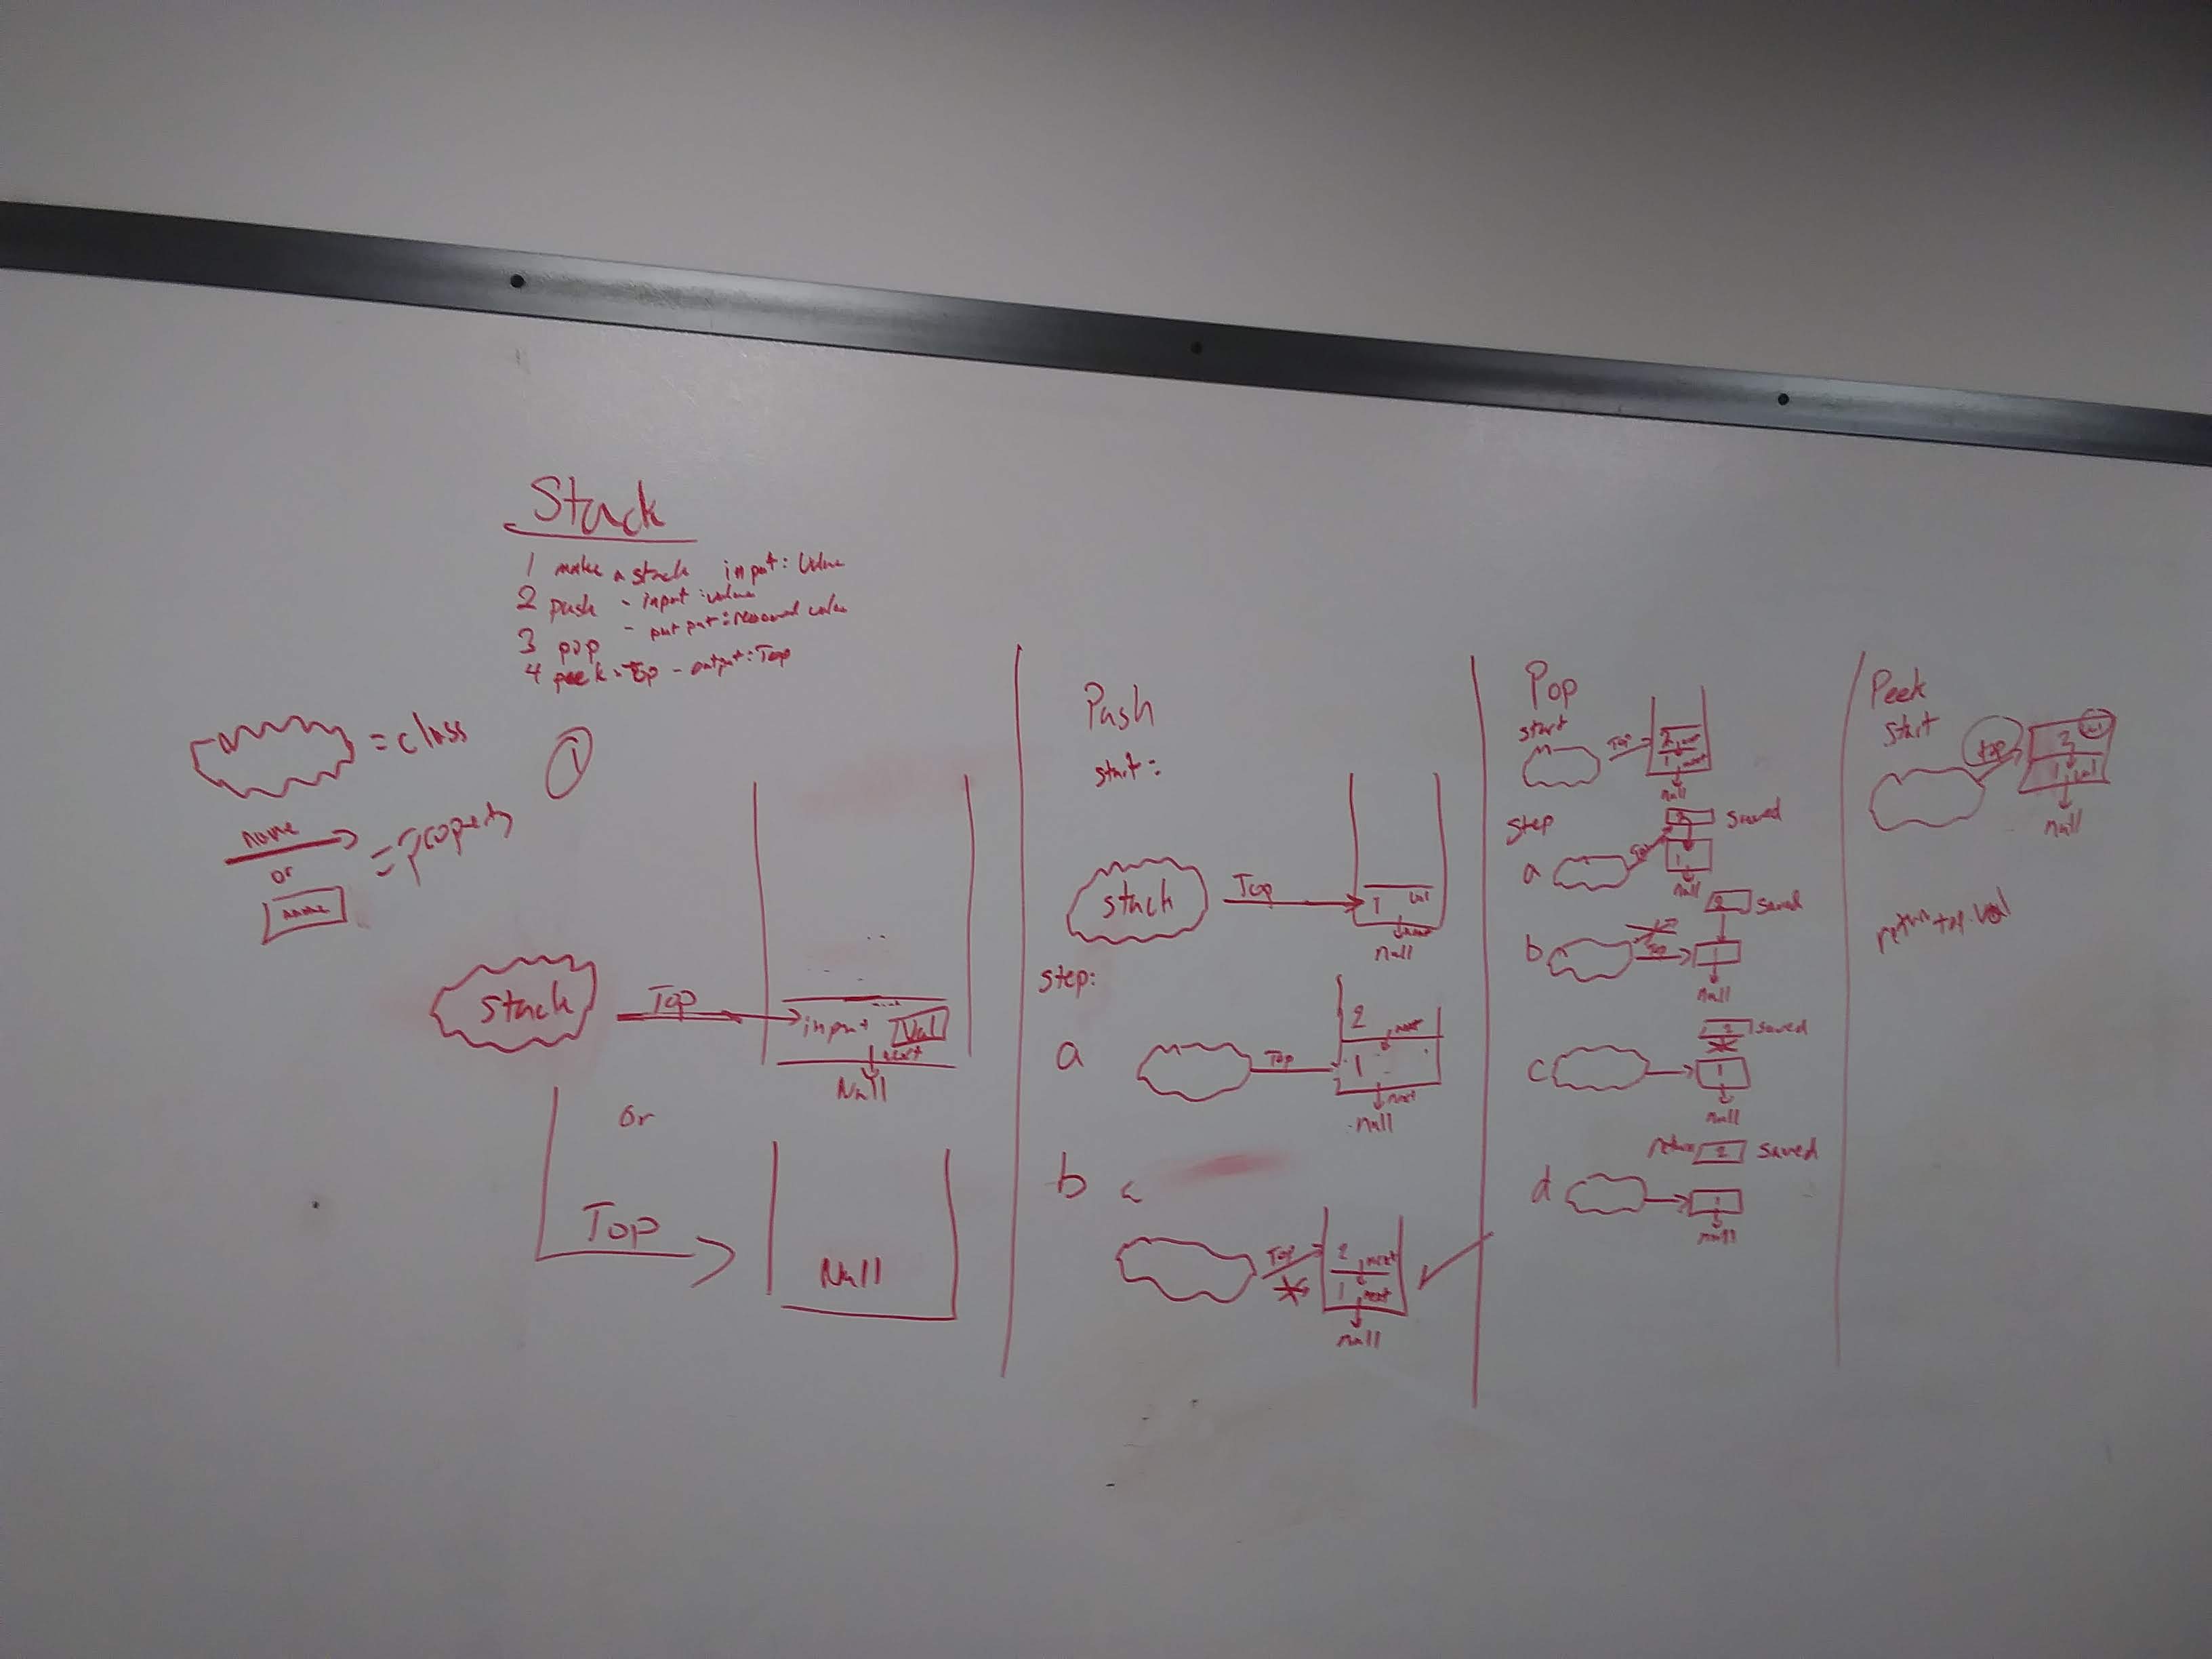 Stack
1 make a stack input: Value
2 push - input: value
3 pop - output: removed value
4 peek = Top - output: Top
= class
name
or
name
= property
1
stack
Top
input Val
next
Null
or
Top
Null
Push
start:
stack
Top
1 val
next
null
step:
a
Top
2 next
1
next
null
b
Top
2 next
1 next
null
Pop
start
Top
2 next
1 next
null
step
2 saved
a
Top
1
null
2 saved
b
Top
1
null
2 saved
c
1
null
return 2 saved
d
1
null
Peek
start
top
2 val
1 val
null
return top.val